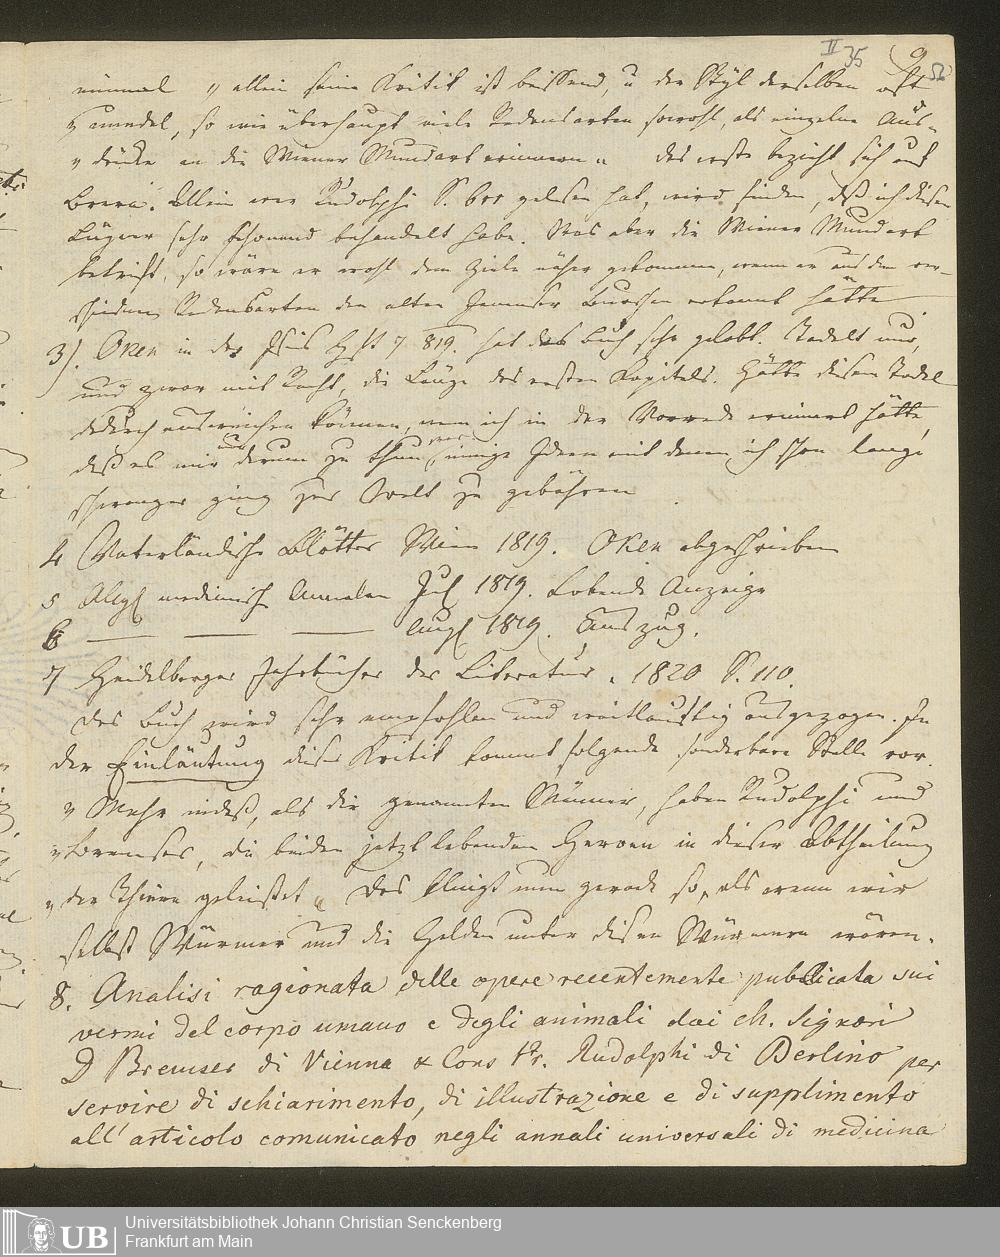 II 35
einmal „ allein seine Kritik ist beissend, u der Styl derselben oft
„ gemein, so wie überhaupt viele Redensarten sowohl, als einzelne Aus-
„ drücke an die Wiener Mundart erinnern „ das erste bezieht sich auf
Brera. Allein wer Rudolphi S. gelesen hat, wird finden, daß ich diesen
Lügner sehr schonend behandelt habe. Was aber die Wiener Mundart
betrift, so wäre er wohl dem Ziele näher gekommen, wenn er aus den ver-
schiednen Redensarten den alten Jenenser Burschen erkannt hätte
3). Oken in der Isis Heft 7 819. hat das Buch sehr gelobt. Tadelt nur,
und zwar mit Recht, die Länge des ersten Kapitels. Hätte diesem Tadel
dadurch ausweichen können, wenn ich in der Vorrede erinnert hätte,
daß es mir nur darum zu thun war, einige Ideen mit denen ich schon lange
schwanger ging zur Welt zu gebähren
4 Vaterländische Blätter Wien 1819. Oken abgeschrieben
5 Allg medicinisch Annalen Jul 1819. Lobende Anzeige
6 — — — Aug 1819. Auszug.
7 Heidelberger Jahrbücher der Literatur. 1820 S. 110.
das Buch wird sehr empfohlen und weitläuftig ausgezogen. In
der Einläutung dieser Kritik kommt folgende sonderbare Stelle vor.
„ Mehr indeß, als die genannten Männer, haben Rudolphi und
„ Bremser, die beiden jetzt lebenden Heroen in dieser Abtheilung
„ der Thiere geleistet „ Das klingt nun gerade so, als wenn wir
selbst Würmer und die Helden unter diesen Würmern wären.
8. Analisi ragionata delle opere recentemente pubblicata sui
vermi del corpo umano e degli animali dai ch. Signori
D Bremser di Vienna & Cons Pr. Rudolphi di Berlino per
servire di schiarimento, di illustrazione e di supplimento
all' articolo comunicato negli annali universali di medicina
UB
Universitätsbibliothek Johann Christian Senckenberg
Frankfurt am Main